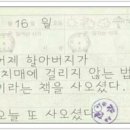 16 월
어제 할아버지가
치매에 걸리지 않는 법
이라는 책을 사오셨다.
오늘 또 사오셨다.